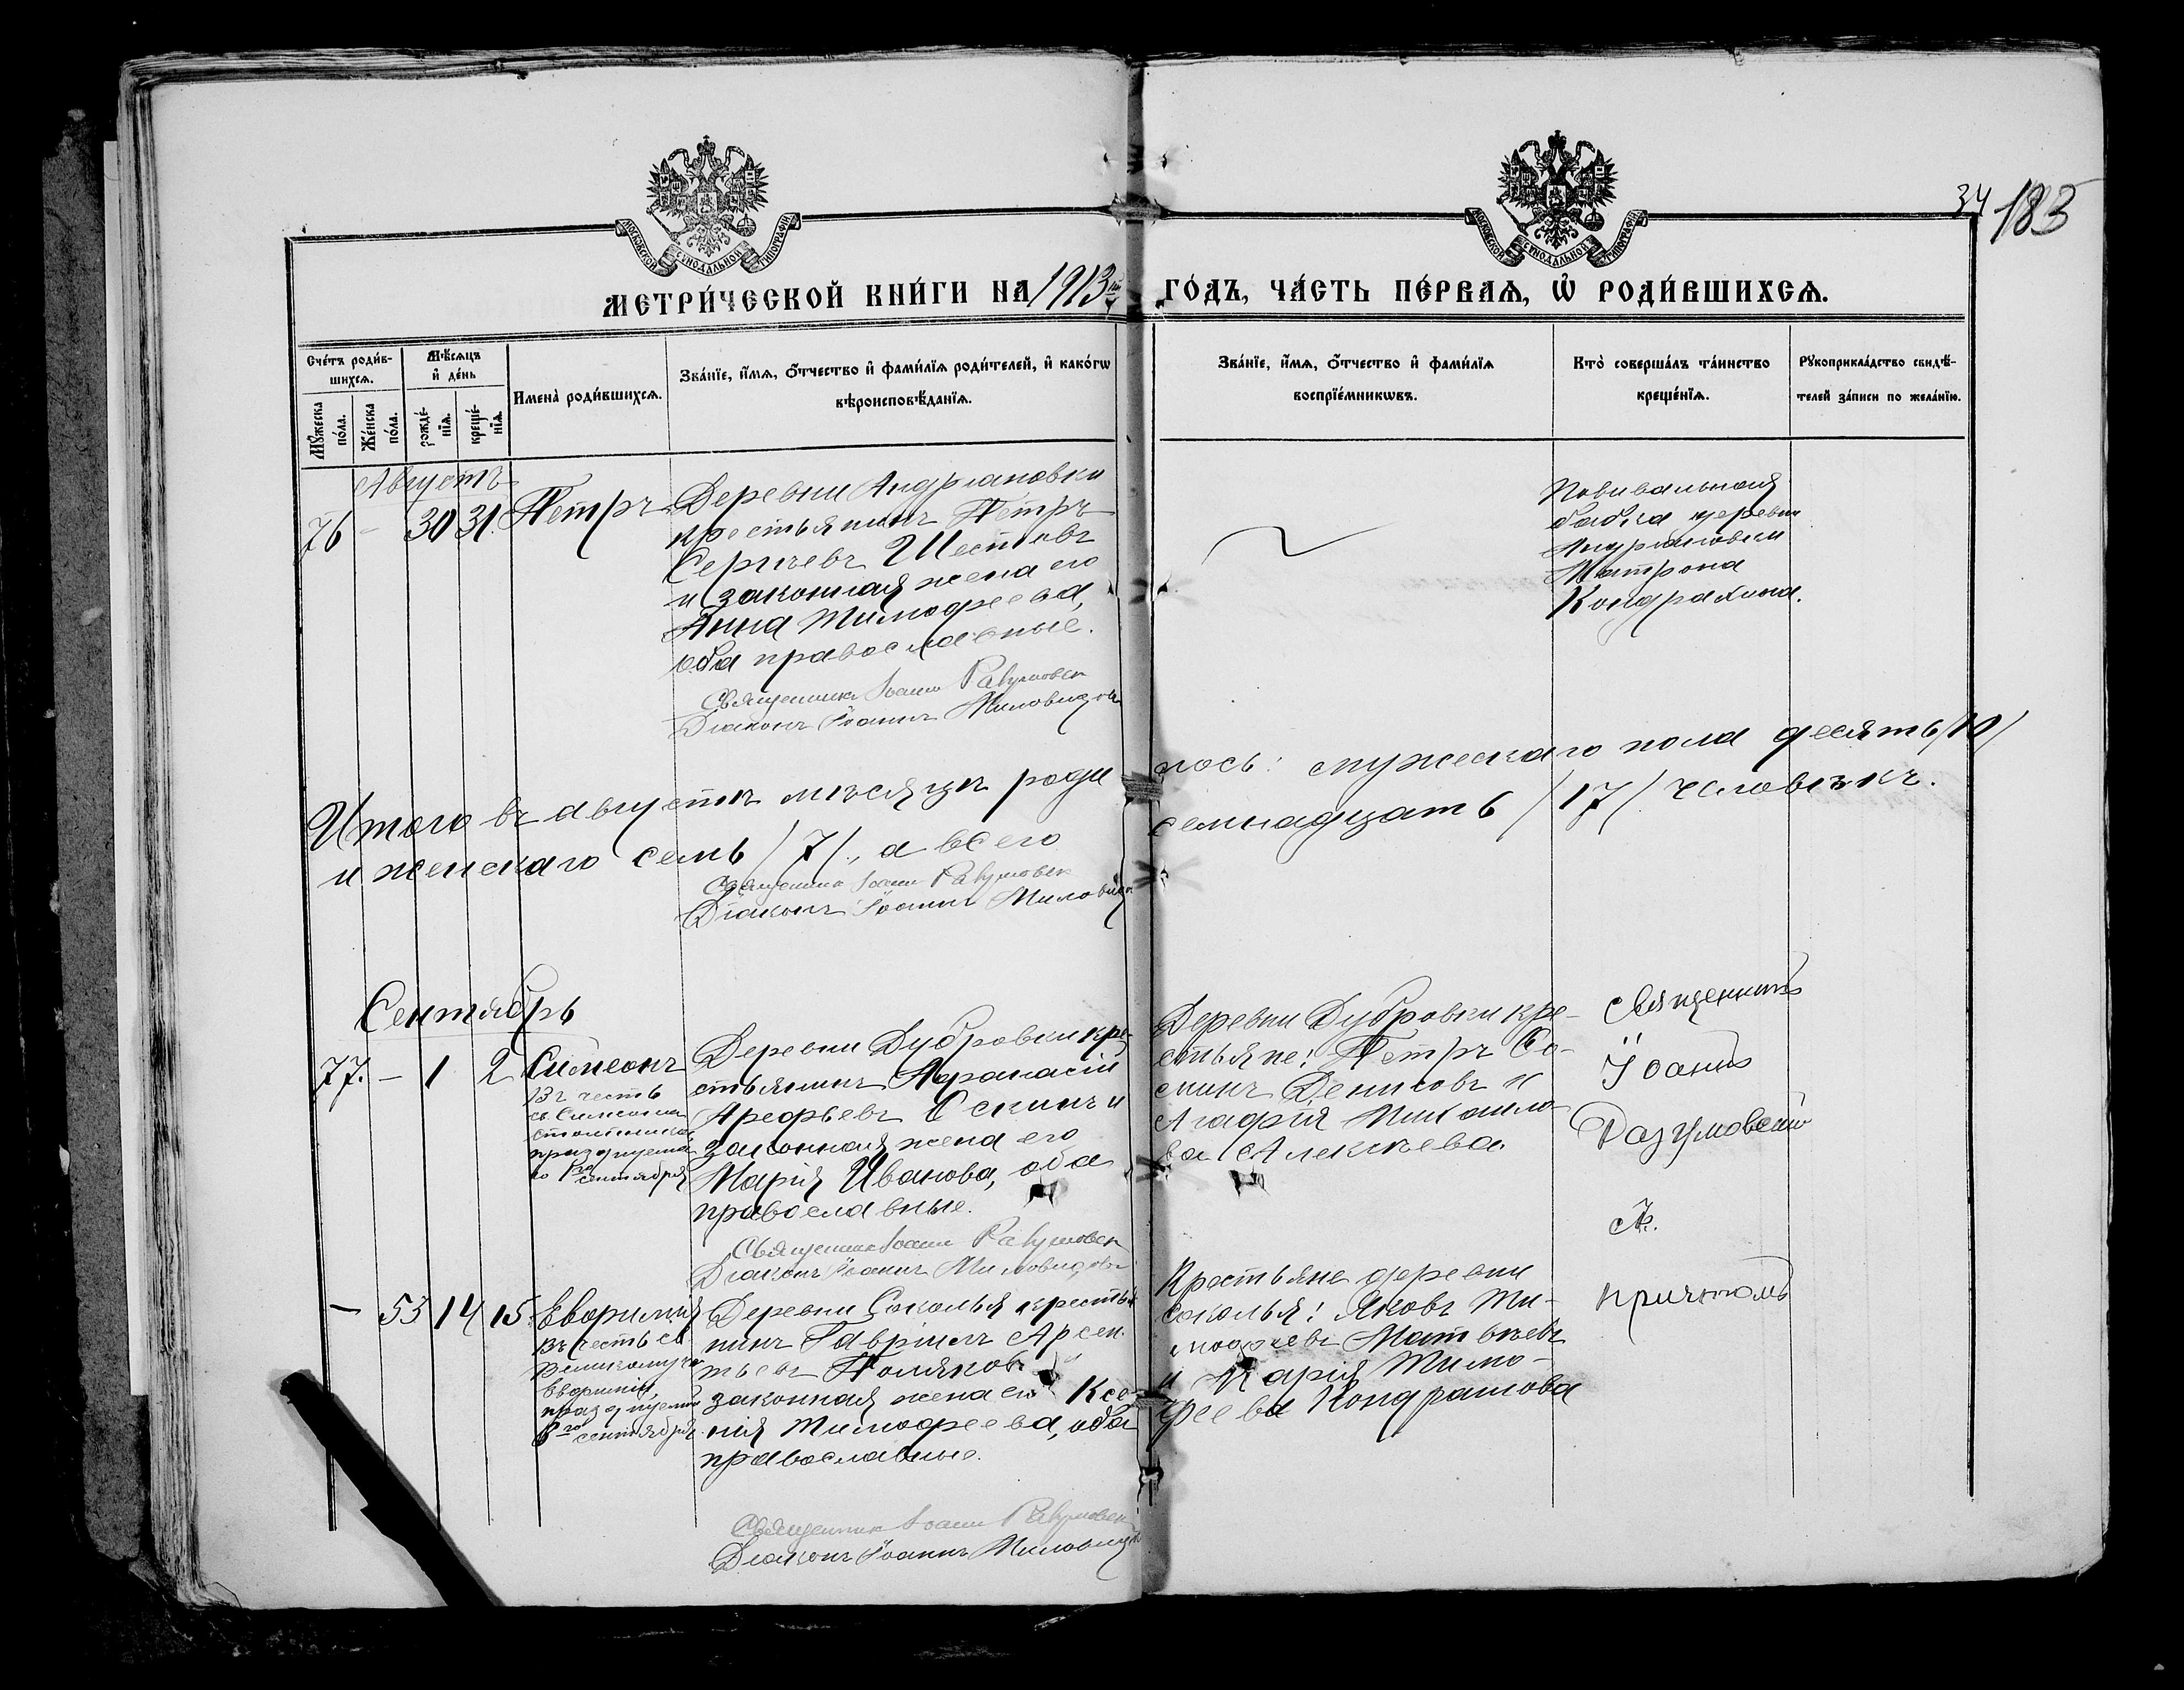 МОСКОВСКОЙ СѴНОДАЛЬНОЙ ТИПОГРАФІИ
МОСКОВСКОЙ СѴНОДАЛЬНОЙ ТИПОГРАФІИ
34 183
МЕТРИ́ЧЕСКОЙ КНИ́ГИ НА 1913й ГО́ДЪ, ЧА́СТЬ ПЕ́РВАѦ, Ѡ҆ РОДИ́ВШИХСѦ.
Сче́тъ роди́в-
шихсѧ.
Мѣ́сѧцъ
и҆ де́нь
Мꙋ́жеска
по́ла.
Же́нска
по́ла.
рожде́-
нїѧ.
креще́-
нїѧ.
Имена̀ роди́вшихсѧ.
Зва́нїе, и҆́мѧ, ѻ҆́тчество и҆ фами́лїѧ роди́телей, и҆ како́гѡ
вѣроисповѣ́данїѧ.
Зва́нїе, и҆́мѧ, ѻ҆́тчество и҆ фами́лїѧ
воспрїе́мникѡвъ.
Кто̀ соверша́лъ та́инство
креще́нїѧ.
Рꙋкоприкла́дство свидѣ́-
телей за́писи по жела́нїю.
Августъ
76 - 30 31. Петръ
Деревни Андріановки
крестьянинъ Петръ
Сергѣевъ Шестовъ
и законная жена его
Анна Тимофеева,
оба православные.
Священникъ Іоаннъ Разумовск
Діаконъ Іоаннъ Миловидовъ
Повивальная
бабка деревни
Андріановки
Матрона
Кондрахина.
Итого въ августѣ мѣсяцѣ роди
лось: мужескаго пола десять /10/
и женскаго семь /7/, а всего
семнадцать /17/ человѣкъ.
Священникъ Іоаннъ Разумовск
Діаконъ Іоаннъ Миловидо
Сентябрь
77. - 1 2 Симеонъ
въ честь
св. Симеона
столпника,
празднуема
го 1го
сентября
Деревни Дубровки кре-
стьянинъ Афанасій
Арефьевъ Оскинъ и
законная жена его
Марія Иванова, оба
православные.
Священникъ Іоаннъ Разумовск
Діаконъ Іоаннъ Миловидовъ
Деревни Дубровки кре-
стьяне: Петръ Со-
Денисовъ и
Агафія Михаило
ва Алексѣева.
Священникъ
Іоаннъ
Разумовскій
съ
причтомъ
- 53 14 15. Евфимія
въ честь св.
великомуч
Евфиміи,
празднуемой
сентября.
Деревни Соколья крестья
нинъ Гавріилъ Арсен-
тьевъ Поляковъ и
законная жена его Ксе-
нія Тимофеева, оба
православные.
Священникъ Іоаннъ Разумовск
Діаконъ Іоаннъ Миловидо
Крестьяне деревни
Соколья: Яковъ Ти-
мофеевъ Матвѣевъ
и Марія Тимо-
феева Кондрашова